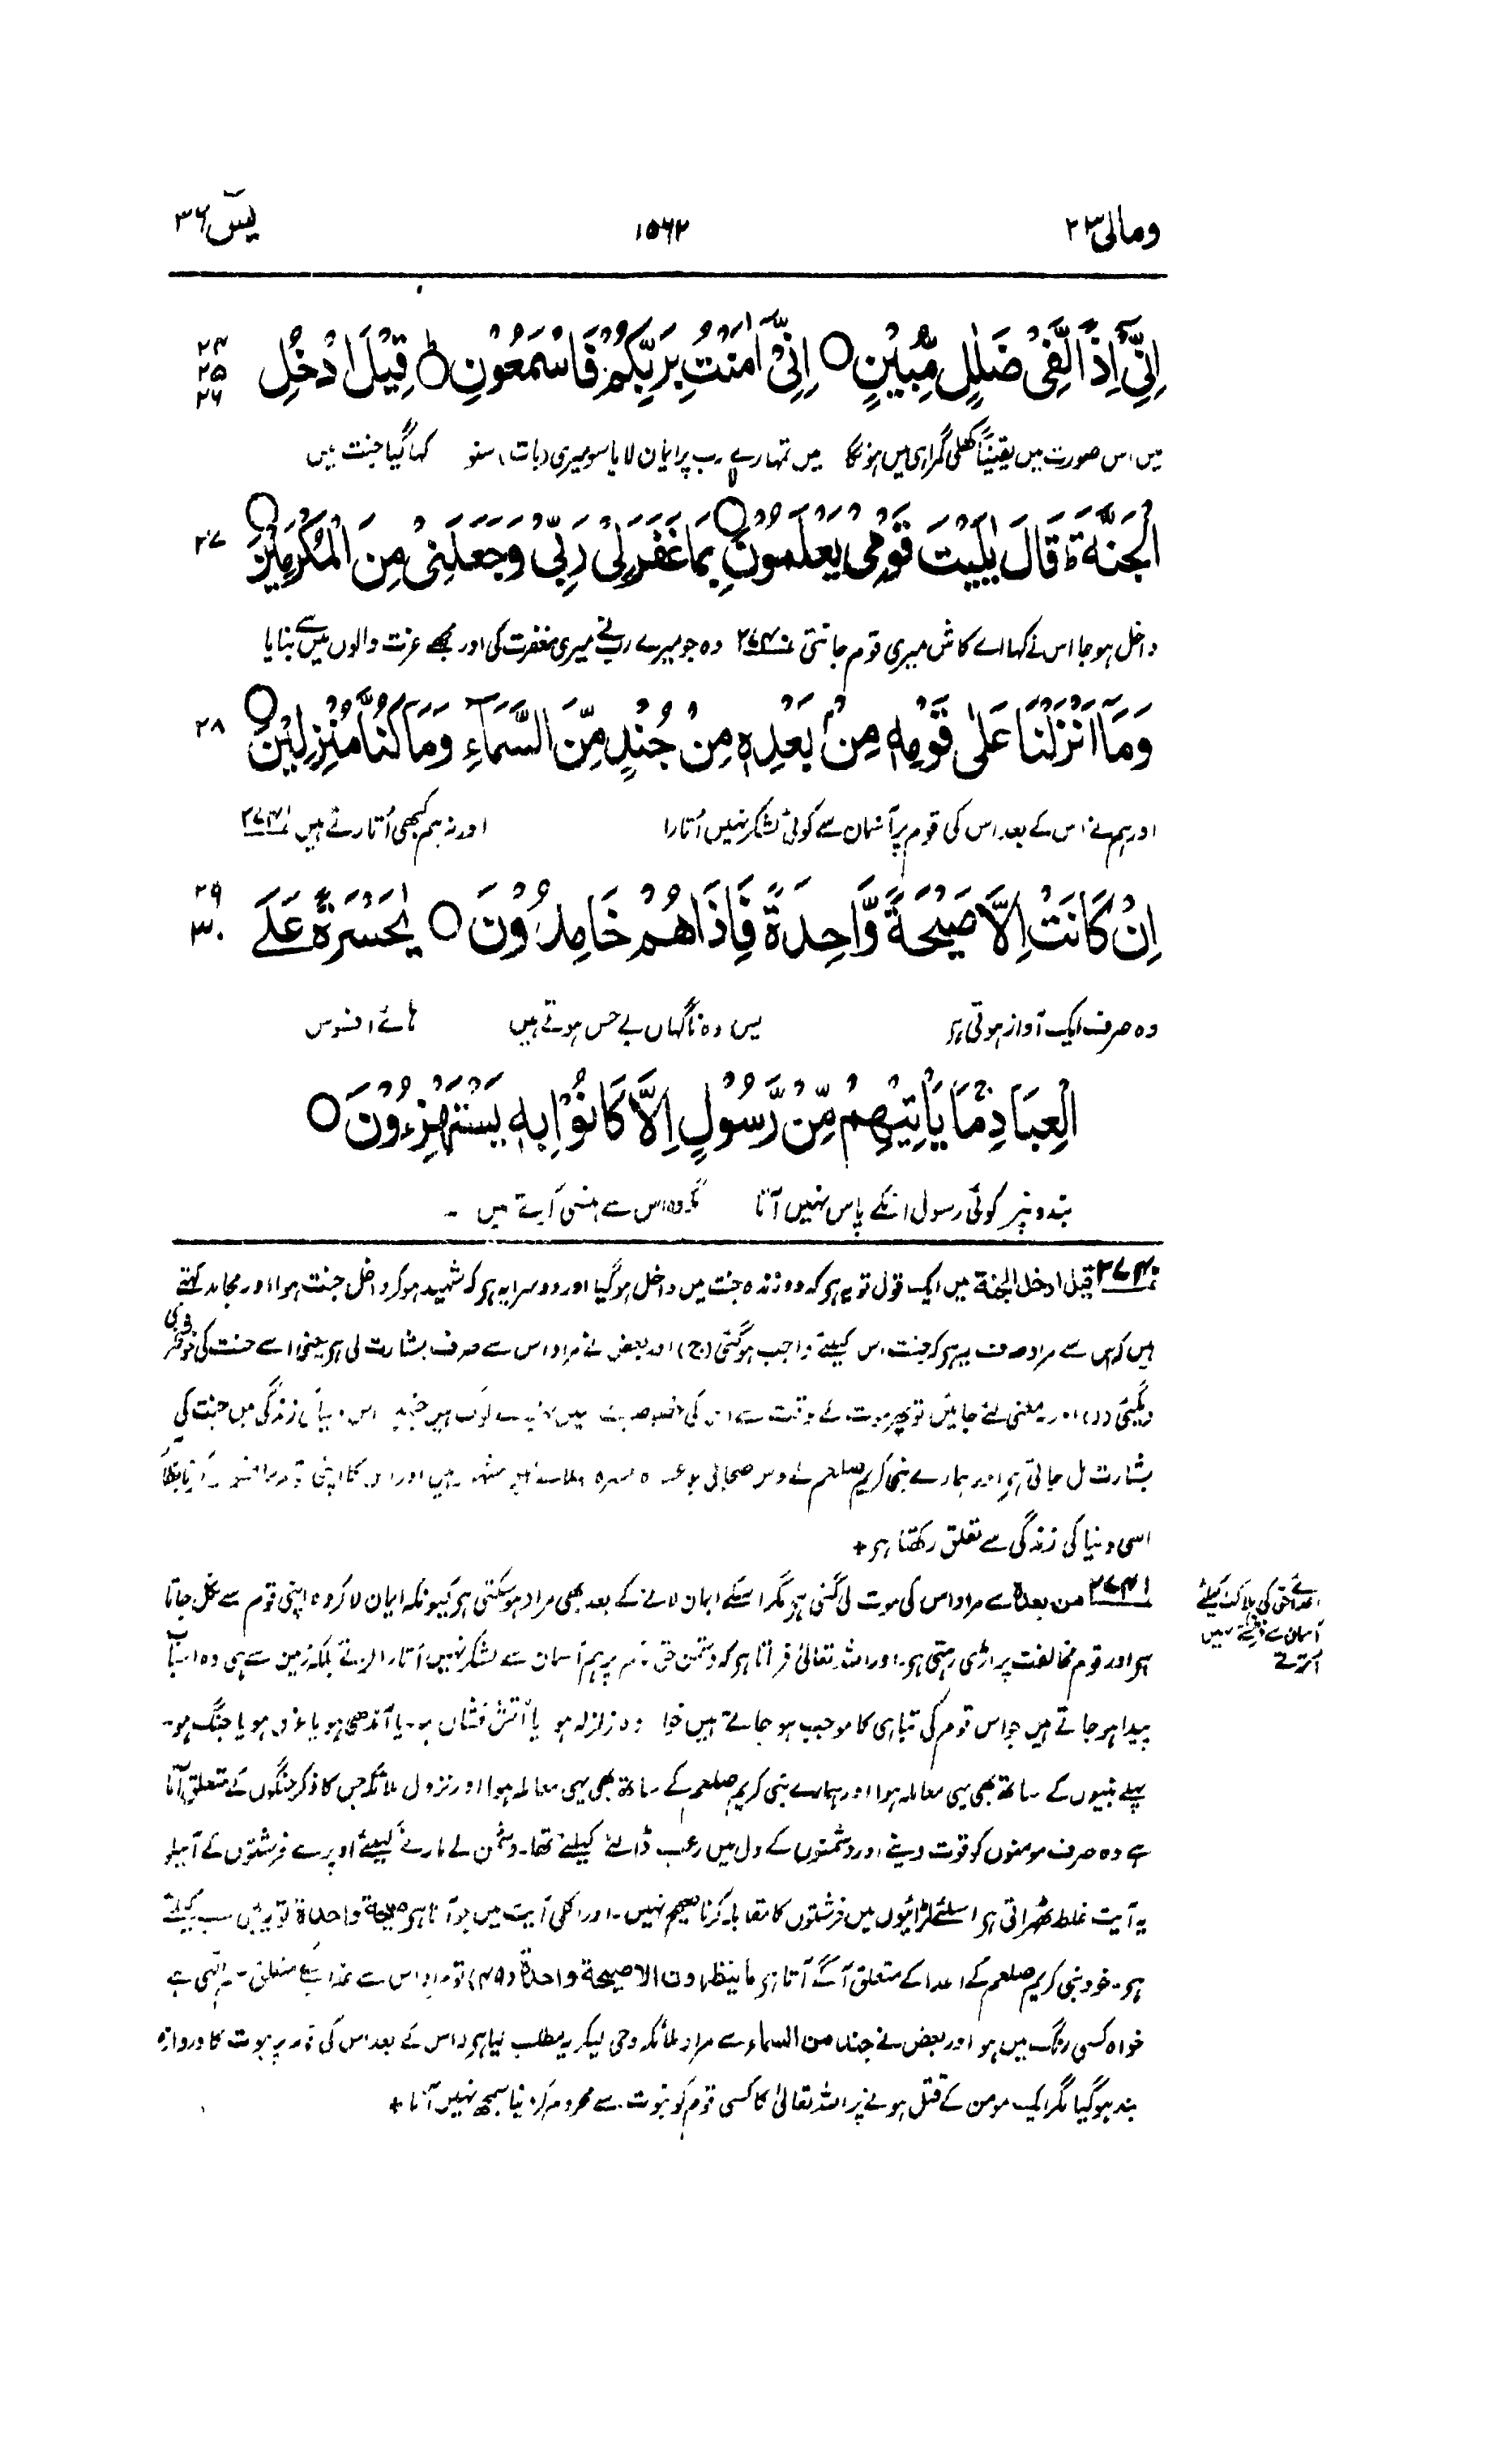 ومالی ۲۳ ۱۵۶۲ یٰسٓ ۳۶
اِنِّیْٓ اِذًا لَّفِیْ ضَلٰلٍ مُّبِیْنٍ ○ اِنِّیْٓ اٰمَنْتُ بِرَبِّكُمْ فَاسْمَعُوْنِ ○ؕ قِیْلَ ادْخُلِ ۲۴ ۲۵ ۲۶
میں اس صورت میں یقیناً کھلی گمراہی میں ہونگا میں تمہارے رب پر ایمان لایا سو میری (بات) سنو کہا گیا جنت میں
الْجَنَّةَ ؕ قَالَ یٰلَیْتَ قَوْمِیْ یَعْلَمُوْنَ ○ۙ بِمَا غَفَرَ لِیْ رَبِّیْ وَجَعَلَنِیْ مِنَ الْمُكْرَمِیْنَ ○ ۲۷
داخل ہوجا اس نے کہا اے کاش میری قوم جانتی ۲۷۴۰ وہ جو میرے رب نے میری مغفرت کی اور مجھے عزت والوں میں سے بنایا
وَمَآ اَنْزَلْنَا عَلٰی قَوْمِهٖ مِنْۢ بَعْدِهٖ مِنْ جُنْدٍ مِّنَ السَّمَآءِ وَمَا كُنَّا مُنْزِلِیْنَ ○ ۲۸
اور ہم نے اس کے بعد اس کی قوم پر آسمان سے کوئی لشکر نہیں اُتارا اور نہ ہم کبھی اُتارتے ہیں ۲۷۴۱
اِنْ كَانَتْ اِلَّا صَیْحَةً وَّاحِدَةً فَاِذَا هُمْ خَامِدُوْنَ ○ یٰحَسْرَةً عَلَی ۲۹ ۳۰
وہ صرف ایک آواز ہوتی ہر پس وہ ناگہاں بے حس ہوتے ہیں ہائے افسوس
الْعِبَادِ ۚ مَا یَاْتِیْهِمْ مِّنْ رَّسُوْلٍ اِلَّا كَانُوْا بِهٖ یَسْتَهْزِءُوْنَ ○
بندوں پر کوئی رسول انکے پاس نہیں آتا مگر وہ اس سے ہنسی کرتے ہیں ۔
۲۷۴۰ قیل ادخل الجنة میں ایک قول تو یہ ہر کہ وہ زندہ جنت میں داخل ہوگیا اور دوسرا یہ ہر کہ شہید ہوکر داخل جنت ہوا اور مجاہد کہتے
ہیں کہ اس سے مراد صرف یہ ہر کہ جنت اس کیلئے واجب ہوگئی (ج) اور بعض نے مراد اس سے صرف بشارت لی ہر یعنی اسے جنت کی خوشخبری
دیگئی (ر) اور یہ معنی لئے جائیں تو پھر موت کے وقت سے اس کی خصوصیت نہیں اس دنیا کی زندگی میں جنت کی
بشارت مل جاتی ہر اور ہمارے نبی کریم صلعم کے دس صحابی ہیں اور اس کا اپنی
اسی دنیا کی زندگی سے تعلق رکھتا ہر +
۲۷۴۱ من بعدہ سے مراد اس کی موت لی گئی ہر مگر اسکے ایمان لانے کے بعد بھی مراد ہوسکتی ہر کیونکہ ایمان لا کر وہ اپنی قوم سے نکل جاتا
ہر اور قوم مخالفت پر اڑی رہتی ہر۔ اور اللہ تعالیٰ فرماتا ہر کہ دشمن حق قوم پر ہم آسمان سے لشکر نہیں اُتارا کرتے بلکہ زمین سے ہی وہ اسباب
پیدا ہوجاتے ہیں جو اس قوم کی تباہی کا موجب ہوجاتے ہیں خواہ وہ زلزلہ ہو یا آتش فشاں ہو۔ یا آندھی ہو یا غرق ہو یا جنگ ہو۔
پہلے نبیوں کے ساتھ بھی یہی معاملہ ہوا اور ہمارے نبی کریم صلعم کے ساتھ بھی یہی معاملہ ہوا اور نزول ملائکہ جس کا ذکر جنگوں کے متعلق آتا
ہے وہ صرف مومنوں کو قوت دینے اور دشمنوں کے دل میں رعب ڈالنے کیلئے تھا۔ دشمن کے مارنے کیلئے اوپر سے فرشتوں کے آنیکو
یہ آیت غلط ٹھہراتی ہر اسلئے لڑائیوں میں فرشتوں کا مقابلہ کرنا صحیح نہیں۔ اور اگلی آیت میں جو آتا ہر صیحة واحدة تو یہ سب کیلئے
ہر۔ خود نبی کریم صلعم کے اعدا کے متعلق آگے آتا ہر ما ینظرون الا صیحة واحدة (۴۹) تو مراد اس سے عذاب
خواہ کسی رنگ میں ہو اور بعض نے جند من السماء سے مراد ملائکہ وحی لیکر یہ مطلب لیا ہر کہ اس کے بعد اس کی قوم پر نبوت کا دروازہ
بند ہوگیا مگر ایک مومن کے قتل ہونے پر اللہ تعالیٰ کا کسی قوم کو نبوت سے محروم کر دینا سمجھ نہیں آتا +
اعدائے حق کی ہلاکت کیلئے
آسمان سے فرشتے نہیں
اُترتے